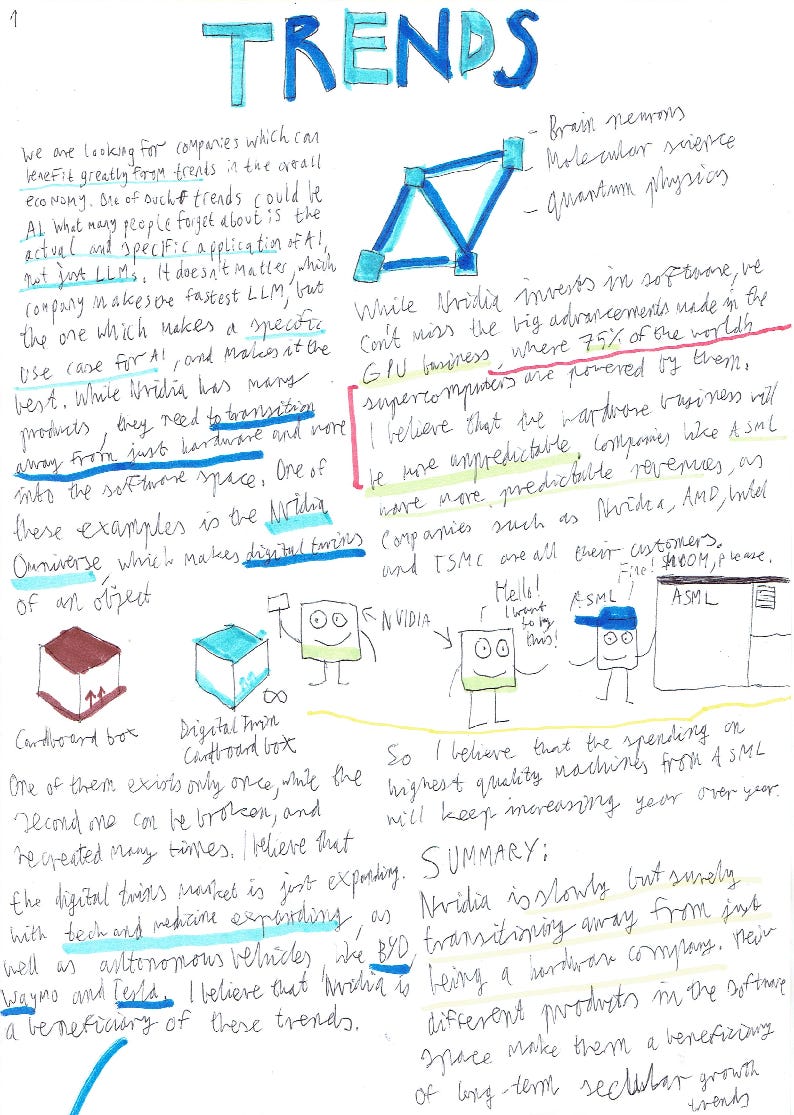 1
TRENDS
We are looking for companies which can
benefit greatly from trends in the overall
economy. One of such trends could be
AI. What many people forget about is the
actual and specific application of AI,
not just LLMs. It doesn't matter, which
company makes the fastest LLM, but
the one which makes a specific
use case for AI, and makes it the
best. While Nvidia has many
products, they need to transition
away from just hardware and more
into the software space. One of
these examples is the Nvidia
Omniverse, which makes digital twins
of an object
Cardboard box
Digital Twin
Cardboard box
∞
One of them exists only once, while the
second one can be broken, and
recreated many times. I believe that
the digital twins market is just expanding.
With tech and medicine expanding, as
well as autonomous vehicles, like BYD,
Waymo and Tesla. I believe that Nvidia is
a beneficiary of these trends.
- Brain neurons
- Molecular science
- quantum physics
While Nvidia invests in software, we
can't miss the big advancements made in the
GPU business, where 75% of the world's
supercomputers are powered by them.
I believe that the hardware business will
be more unpredictable. Companies like ASML
have more predictable revenues, as
companies such as Nvidia, AMD, Intel
and TSMC are all their customers.
NVIDIA
Hello!
I want
to buy
this!
ASML
Fine!
please.
ASML
So I believe that the spending on
highest quality machines from ASML
will keep increasing year over year.
SUMMARY:
Nvidia is slowly but surely
transitioning away from just
being a hardware company. Their
different products in the software
space make them a beneficiary
of long-term secular growth
trends